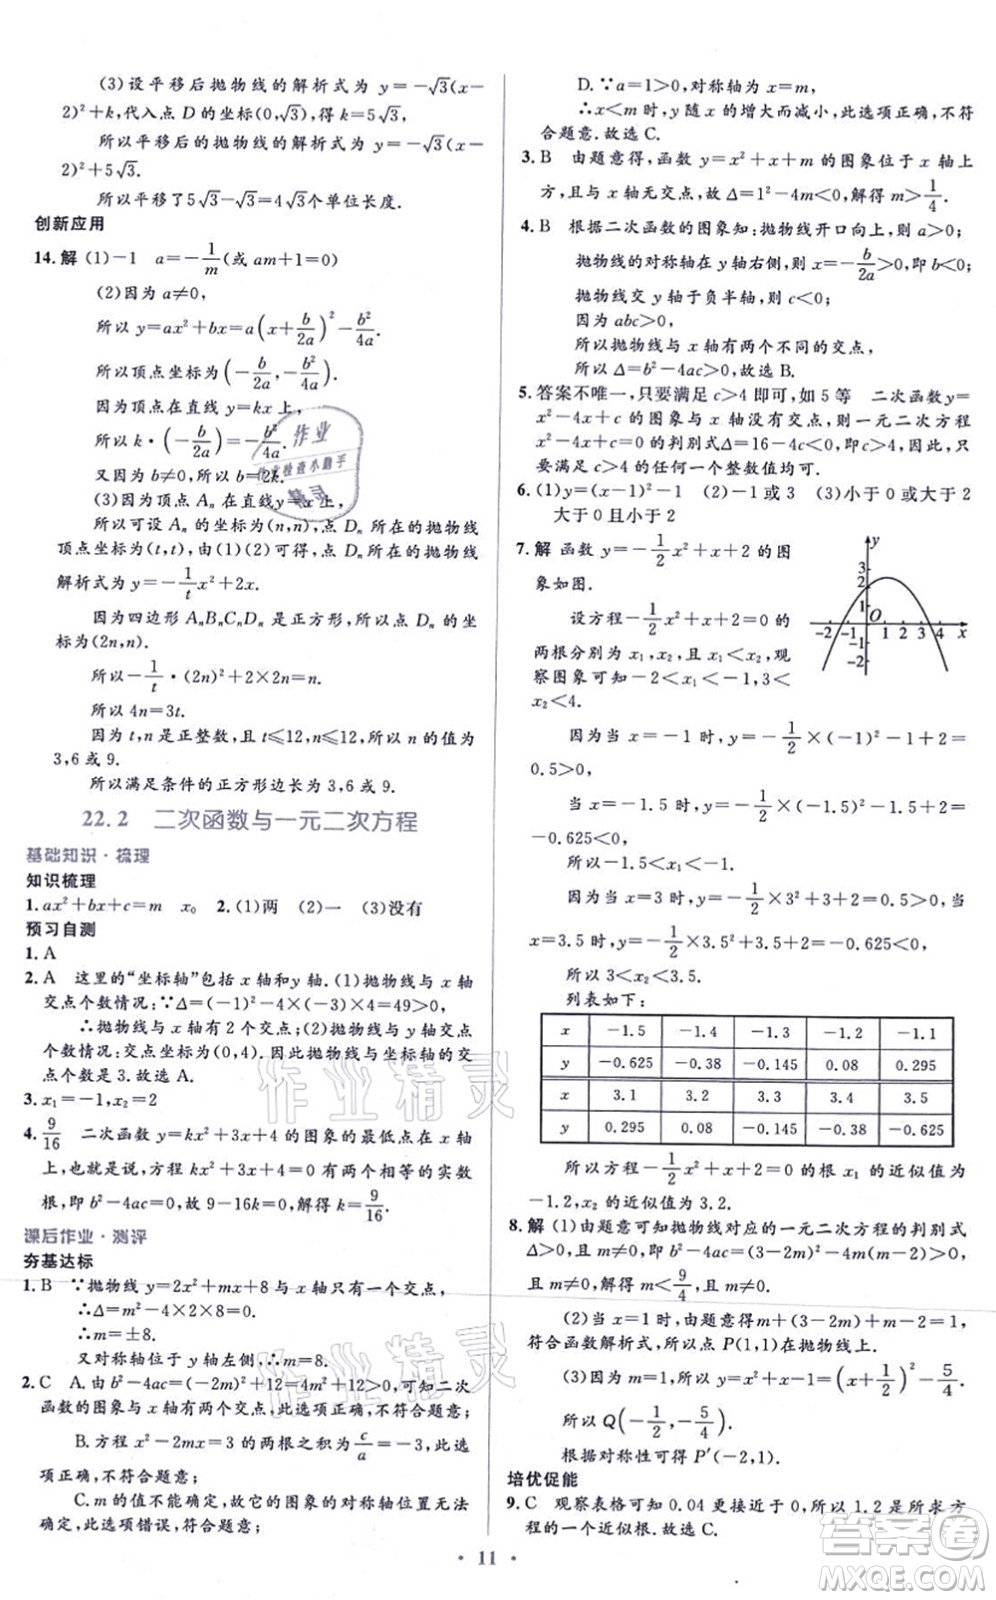 (3)设平移后抛物线的解析式为 y=-√3(x-
2)²+k,代入点 D 的坐标(0,√3),得 k=5√3.
所以平移后的抛物线的解析式为 y=-√3(x-
2)²+5√3.
所以平移了5√3-√3=4√3个单位长度.
创新应用
14.解 (1)-1 a=-1/m(或 am+1=0)
(2)因为 a≠0,
所以 y=ax²+bx=a(x+b/2a)²-b²/4a,
所以顶点坐标为(-b/2a,-b²/4a).
因为顶点在直线 y=kx 上,
所以 k·(-b/2a)=-b²/4a.
又因为 b≠0,所以 b=2k.
(3)因为顶点 Aₙ 在直线 y=x 上,
所以可设 Aₙ 的坐标为(n,n),点 Dₙ 所在的抛物线
顶点坐标为(t,t),由(1)(2)可得,点 Dₙ 所在的抛物线
解析式为 y=-1/t x²+2x.
因为四边形 AₙBₙCₙDₙ 是正方形,所以点 Dₙ 的坐
标为(2n,n).
所以-1/t·(2n)²+2×2n=n.
所以 4n=3t.
因为 t,n 是正整数,且 t≤12,n≤12,所以 n 的值为
3,6 或 9.
所以满足条件的正方形边长为 3,6 或 9.
22.2 二次函数与一元二次方程
基础知识·梳理
知识梳理
1.ax²+bx+c=m x₀ 2.(1)两 (2)一 (3)没有
预习自测
1.A
2.A 这里的“坐标轴”包括 x 轴和 y 轴.(1)抛物线与 x 轴
交点个数情况:∵Δ=(-1)²-4×(-3)×4=49>0,
∴抛物线与 x 轴有 2 个交点;(2)抛物线与 y 轴交点
个数情况:交点坐标为(0,4).因此抛物线与坐标轴的交
点个数为 3.故选 A.
3.x₁=-1,x₂=2
4.9/16 二次函数 y=kx²+3x+4 的图象的最低点在 x 轴
上,也就是说,方程 kx²+3x+4=0 有两个相等的实数
根,即 b²-4ac=0,故 9-16k=0,解得 k=9/16.
课后作业·测评
夯基达标
1.B ∵抛物线 y=2x²+mx+8 与 x 轴只有一个交点,
∴Δ=m²-4×2×8=0.
∴m=±8.
又对称轴位于 y 轴左侧,∴m=8.
2.C A.由 b²-4ac=(-2m)²+12=4m²+12>0,可知二次
函数的图象与 x 轴有两个交点,此选项正确,不符合题意;
B.方程 x²-2mx=3 的两根之积为 c/a=-3,此选
项正确,不符合题意;
C.m 的值不能确定,故它的图象的对称轴位置无法
确定,此选项错误,符合题意;
D.∵a=1>0,对称轴为 x=m,
∴x<m 时,y随 x 的增大而减小,此选项正确,不符
合题意.故选 C.
3.B 由题意得,函数 y=x²+x+m 的图象位于 x 轴上
方,且与 x 轴无交点,故 Δ=1²-4m<0,解得 m>1/4.
4.B 根据二次函数的图象知:抛物线开口向上,则 a>0;
抛物线的对称轴在 y 轴右侧,则 x=-b/2a>0,即 b<0;
抛物线交 y 轴于负半轴,则 c<0;
因为 abc>0,
所以抛物线与 x 轴有两个不同的交点,
所以 b²-4ac>0,故选 B.
5.答案不唯一,只要满足 c>4 即可,如 5 等 二次函数 y=
x²-4x+c 的图象与 x 轴没有交点,则一元二次方程
x²-4x+c=0 的判别式Δ=16-4c<0,即 c>4,因此,只
要是 c>4 的任何一个整数值均可.
6.(1)y=(x-1)²-1 (2)-1 或 3 (3)小于 0 或大于 2
大于 0 且小于 2
7.解 函数 y=-1/2x²+x+2 的图
象如图.
设方程-1/2x²+x+2=0的
两根分别为 x₁,x₂,且 x₁<x₂,观
察图象可知-2<x₁<-1,3<
x₂<4.
y
3
2
1
O
-2 -1 1 2 3 4 x
-1
-2
因为 x=-1 时,y=-1/2×(-1)²-1+2=
0.5>0,
因为 x=-1.5 时,y=-1/2×(-1.5)²-1.5+2=
-0.625<0,
所以-1.5<x₁<-1.
因为当 x=3 时,y=-1/2×3²+3+2=0.5>0,
x=3.5 时,y=-1/2×3.5²+3.5+2=-0.625<0,
所以 3<x₂<3.5.
列表如下:
x -1.5 -1.4 -1.3 -1.2 -1.1
y -0.625 -0.38 -0.145 0.08 0.295
x 3.1 3.2 3.3 3.4 3.5
y 0.295 0.08 -0.145 -0.38 -0.625
所以方程-1/2x²+x+2=0 的根 x₁ 的近似值为
-1.2,x₂ 的近似值为 3.2.
8.解 (1)由题意可知抛物线对应的一元二次方程的判别式
Δ>0,而且 m≠0.b²-4ac=(3-2m)²-4m(m-2)>0,
且 m≠0,解得 m<9/4,且 m≠0.
(2)当 x=1 时,由题意得 m+(3-2m)+m-2=1,
符合函数解析式,所以点 P(1,1)在抛物线上.
(3)因为 m=1,所以 y=x²+x-1=(x+1/2)²-5/4,
所以 Q(-1/2,-5/4).
根据对称性可得 P′(-2,1).
培优促能
9.C 观察表格可知 0.04 更接近于 0,所以 1.2 是所求方
程的一个近似根.故选 C.
· 11 ·
作业
作业检查小助手
精灵
作业精灵
作业精灵
答案圈
MXQE.COM